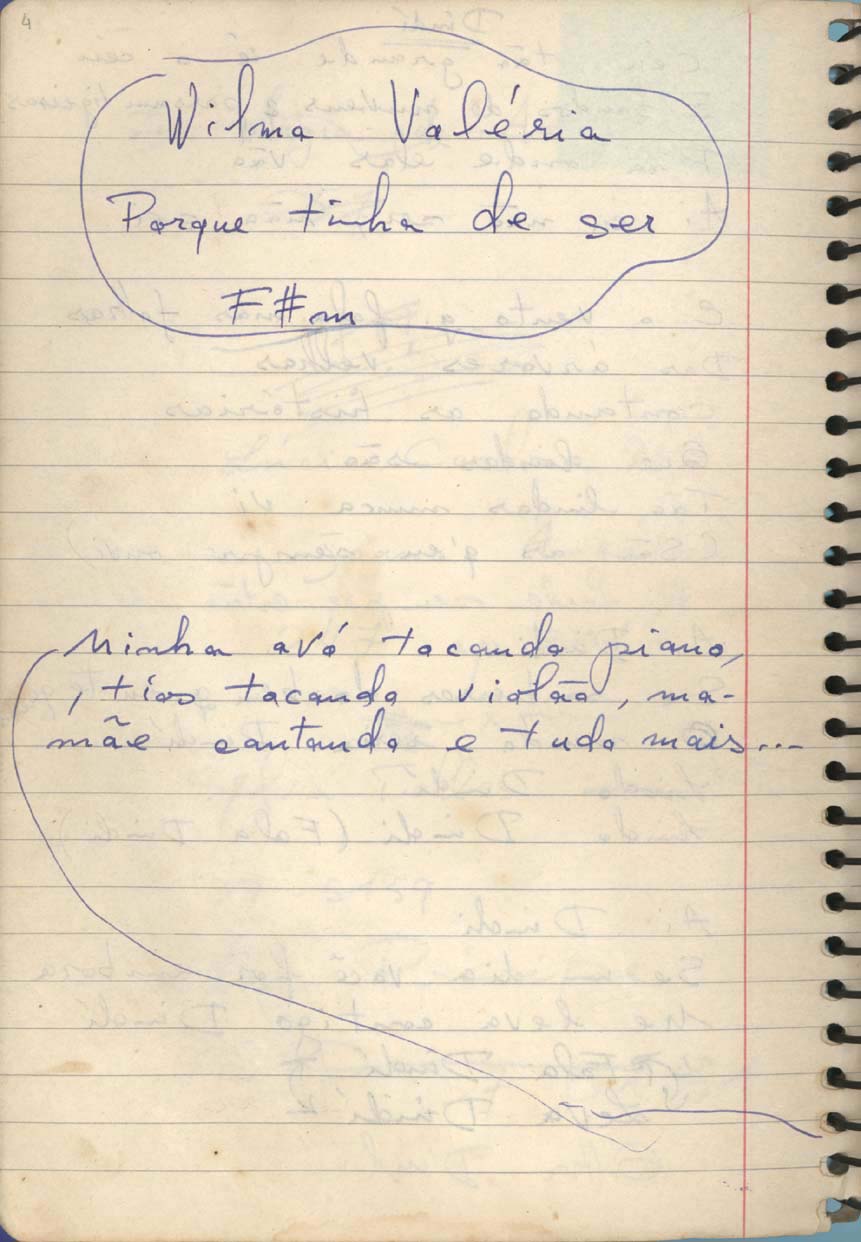 4
Wilma Valéria
Porque tinha de ser
F#m
Minha avó tocando piano,
, tios tocando violão, ma-
mãe cantando e tudo mais...